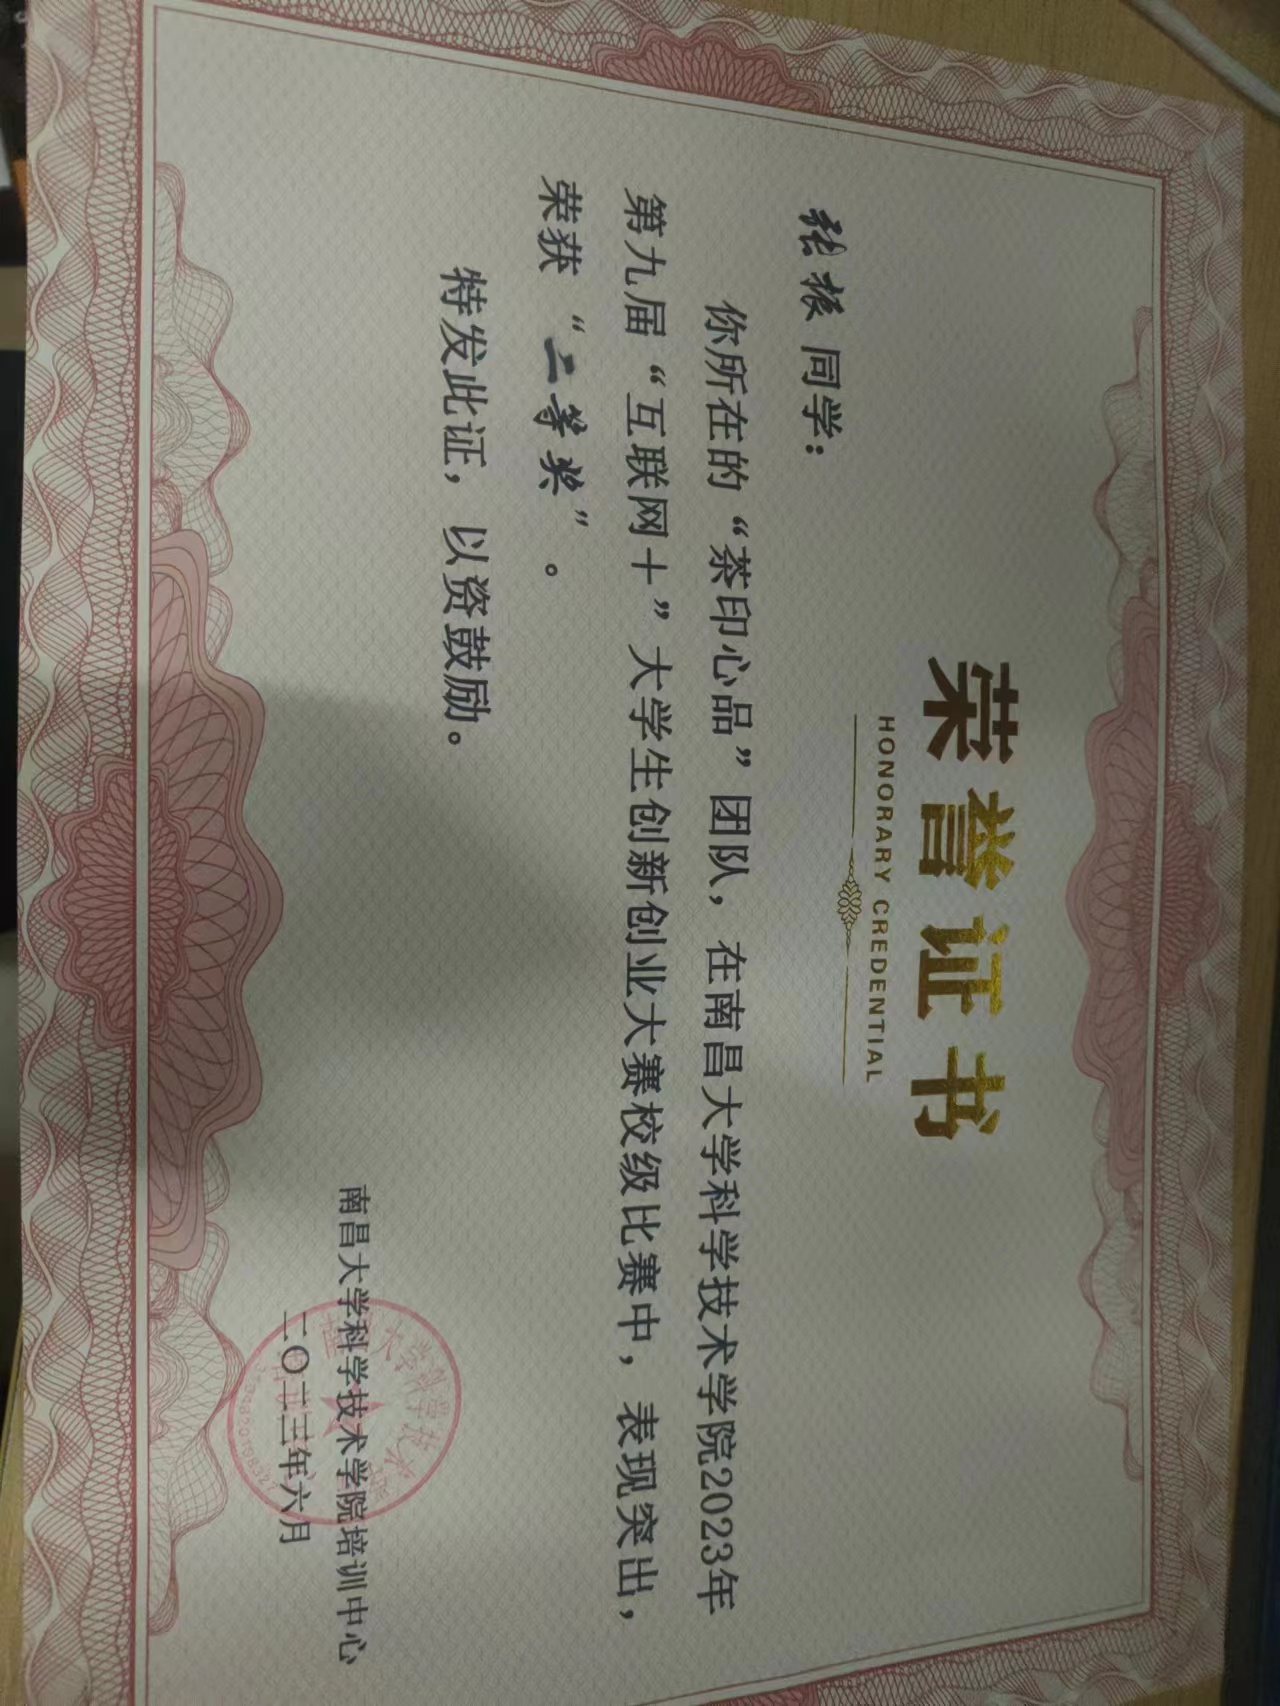 荣誉证书
HONORARY CREDENTIAL
张振 同学：
你所在的“茶印心品”团队，在南昌大学科学技术学院2023年
第九届“互联网＋”大学生创新创业大赛校级比赛中，表现突出，
荣获“二等奖”。
特发此证，以资鼓励。
南昌大学科学技术学院培训中心
二〇二三年六月